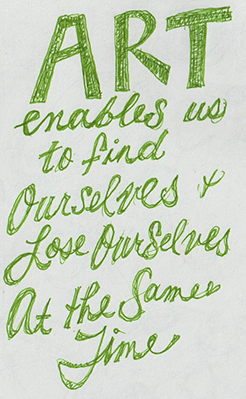 ART
enables us
to find
Ourselves &
Lose Ourselves
At the Same
Time